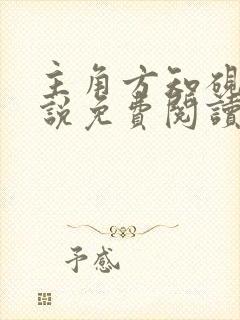 主角方知硯
説免費閱讀
予感